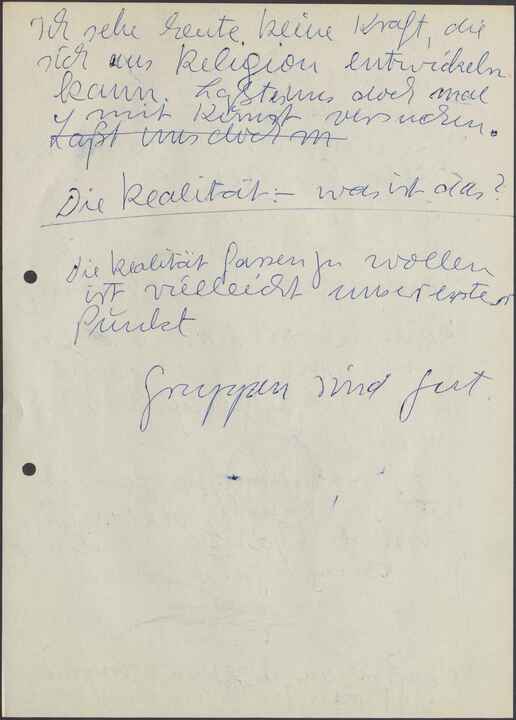 Ich sehe heute keine Kraft, die
sich aus Religion entwickeln
kann. Laßt uns doch mal
mit Kunst versuchen.
Laßt uns doch m
Die Realität – was ist das?
Die Realität fassen zu wollen
ist vielleicht unser erster
Punkt
Gruppen sind gut.